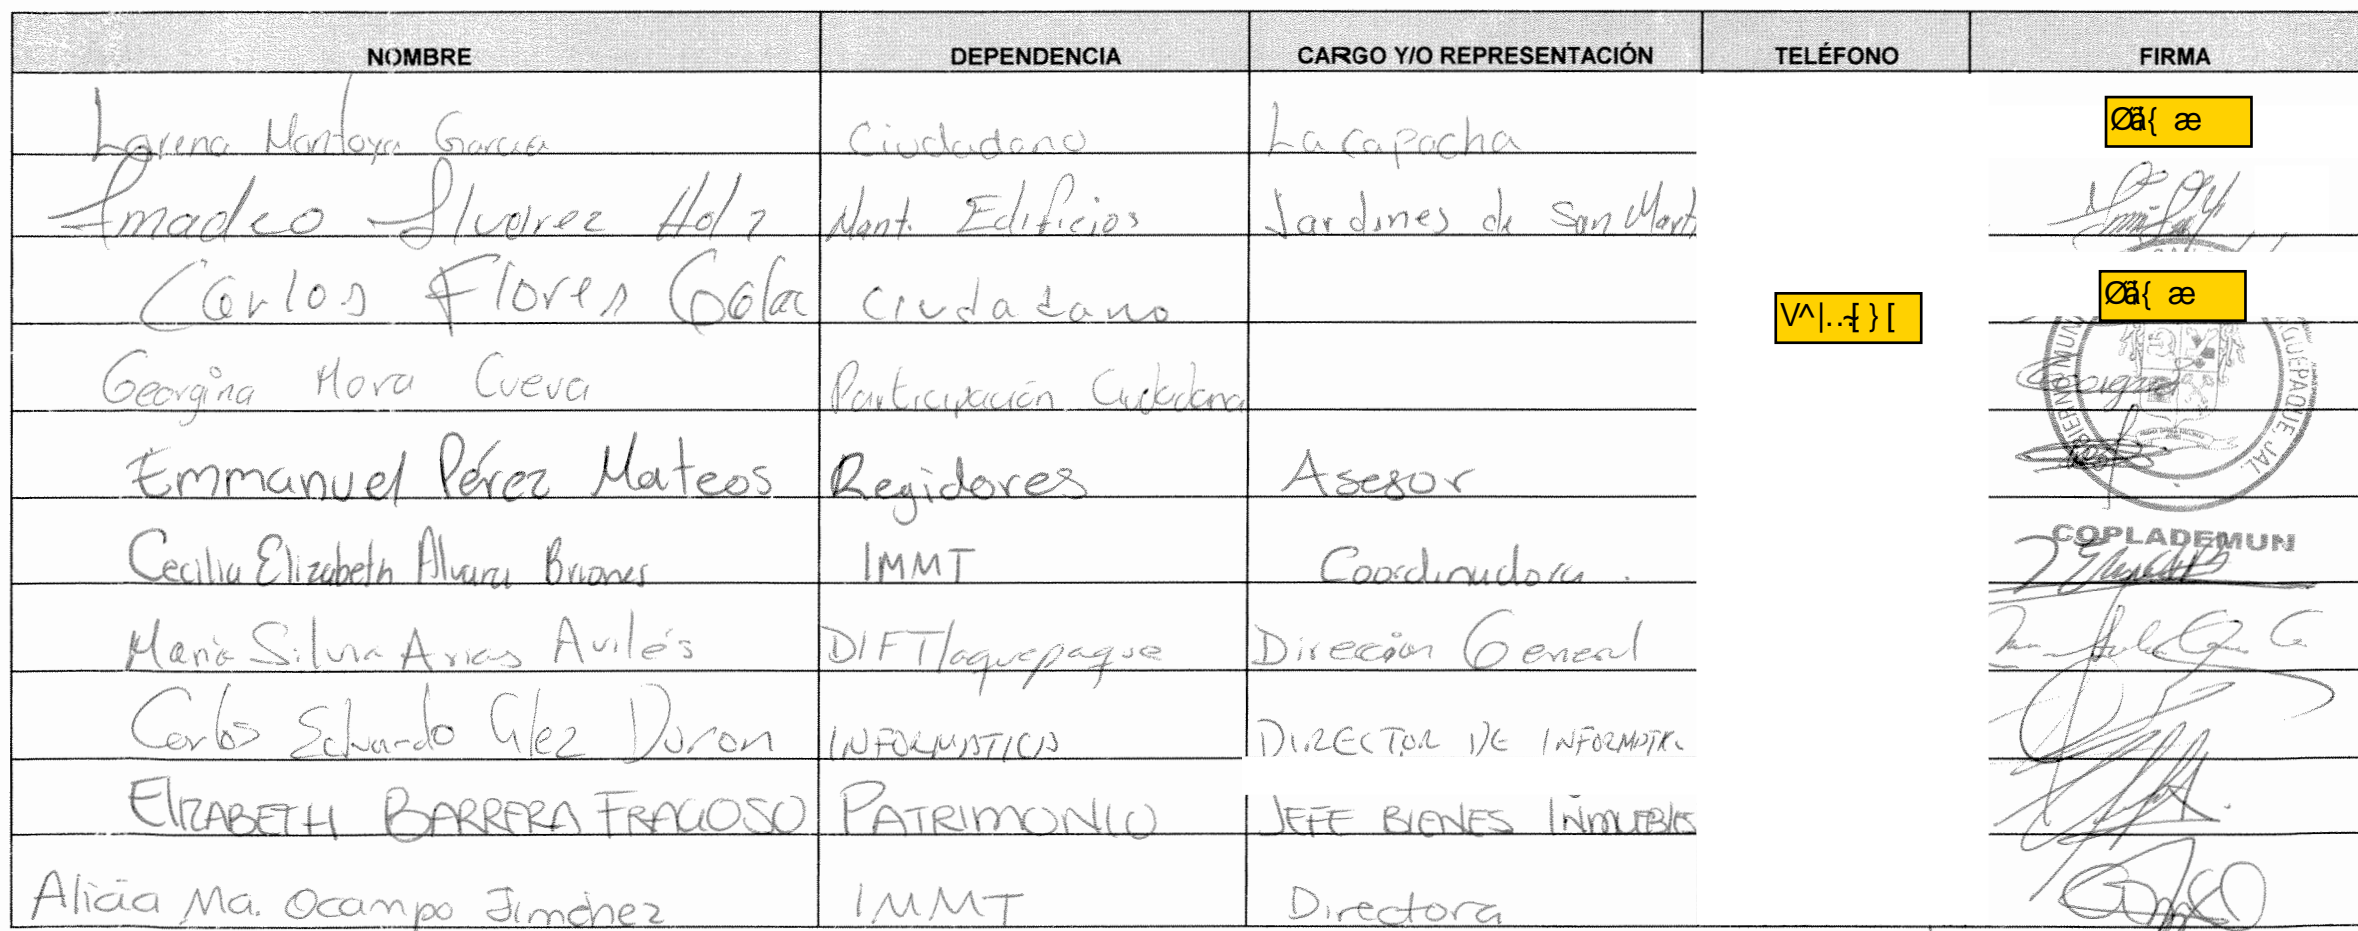 NOMBRE DEPENDENCIA CARGO Y/O REPRESENTACIÓN TELÉFONO FIRMA
Lorena Montoya Garcia Ciudadano La capacha Øã{ æ
Amadeo Alvarez Mant. Edificios Jardines de San Marti
Carlos Flores Ciudadano V^|..~[ } [ Øã{ æ
Georgina Mora Cueva Participación Ciudadana Georgina
Emmanuel Pérez Mateos Regidores Asesor
GUEPAQUE, JAL.
COPLADEMUN
Cecilia Elizabeth Alvara Briones IMMT Coordinadora.
Maria Silvia Arias Avilés DIF Tlaquepaque Dirección General
Carlos Eduardo Glez Duron INFORMATICA DIRECTOR DE INFORMATIC
ELIZABETH BARRERA FRAGOSO PATRIMONIO JEFE BIENES INMUEBLES
Alicia Ma. Ocampo Jiménez IMMT Directora